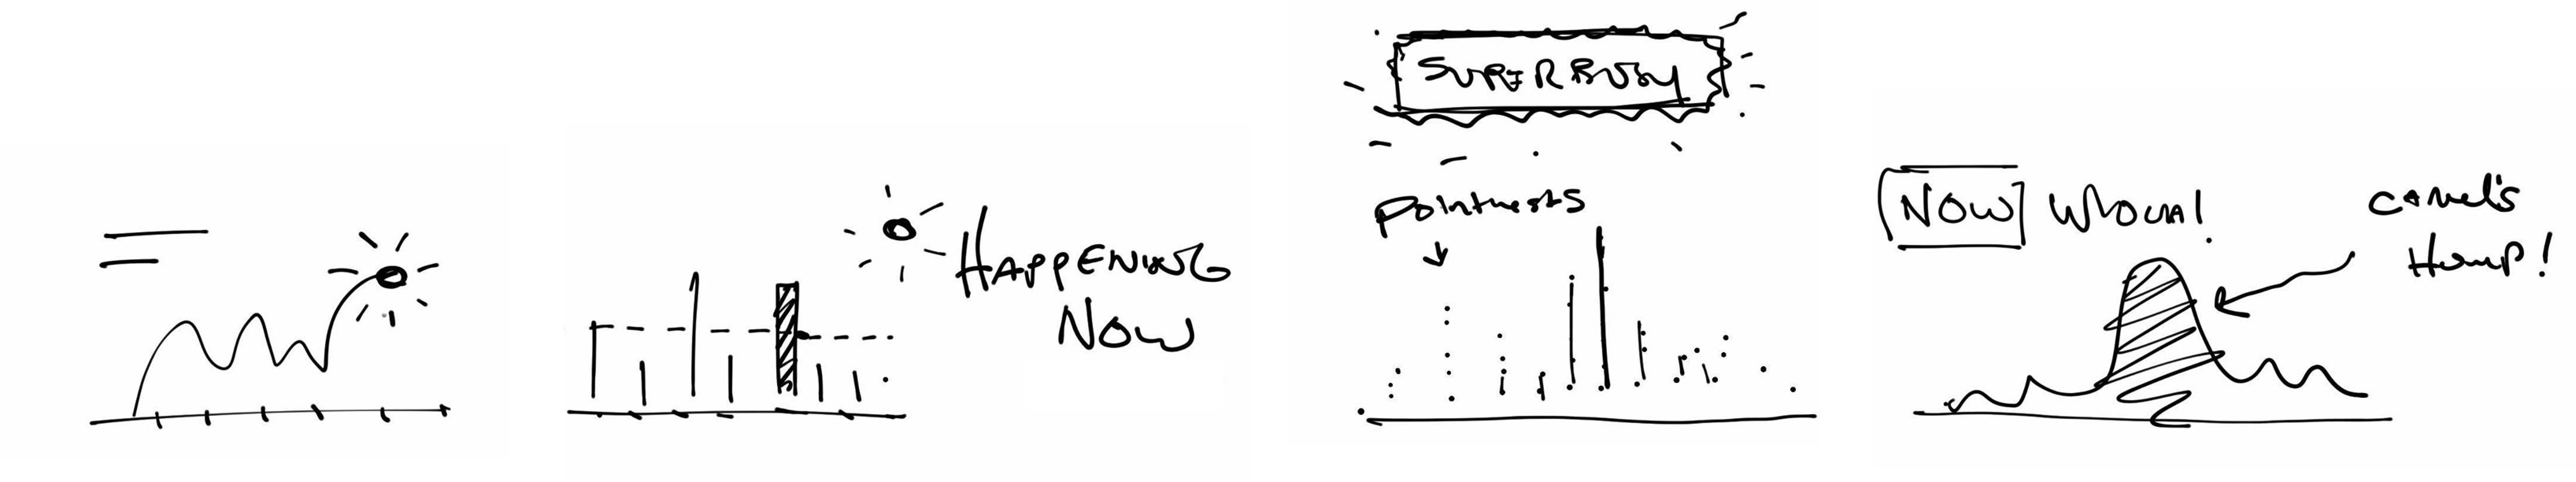 HAPPENING
NOW
SUPERBUSY
Pointhests
NOW WhOUA!
CAMel's
Hump!